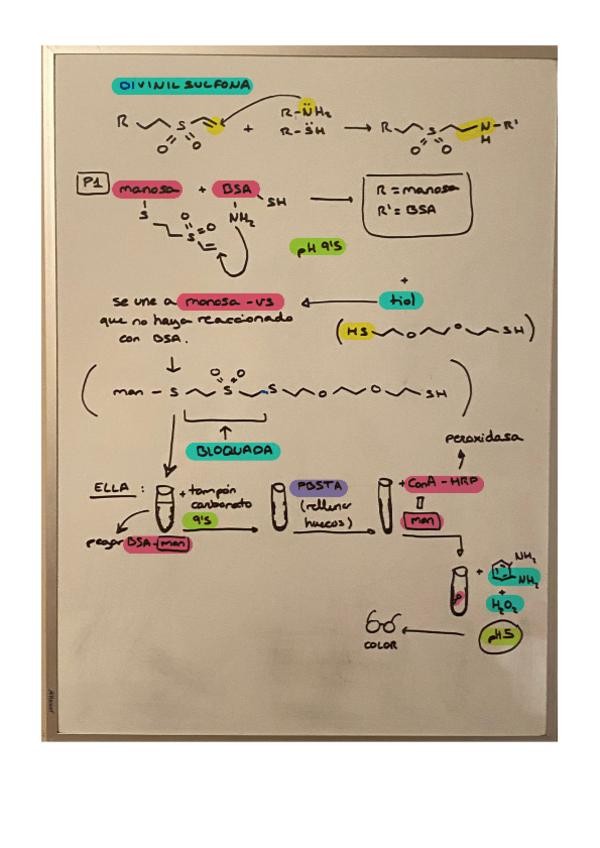 DIVINIL SULFONA
R S O O + R-NH2
R-SH
R S O O N-R'
H
P1 manosa + BSA SH
S NH2
S O O
R = manosa
R' = BSA
pH 9'5
+
tiol
se une a manosa-VS
que no haya reaccionado
con BSA.
(HS O O SH)
(man - S S O O S O O SH)
BLOQUADA
peroxidasa
ELLA: + tampón
carbonato
9'5
PBSTA
(rellenar
huecos)
+ ConA-HRP
man
pegar BSA-man
+ NH2
NH2
+
H2O2
pH 5
COLOR